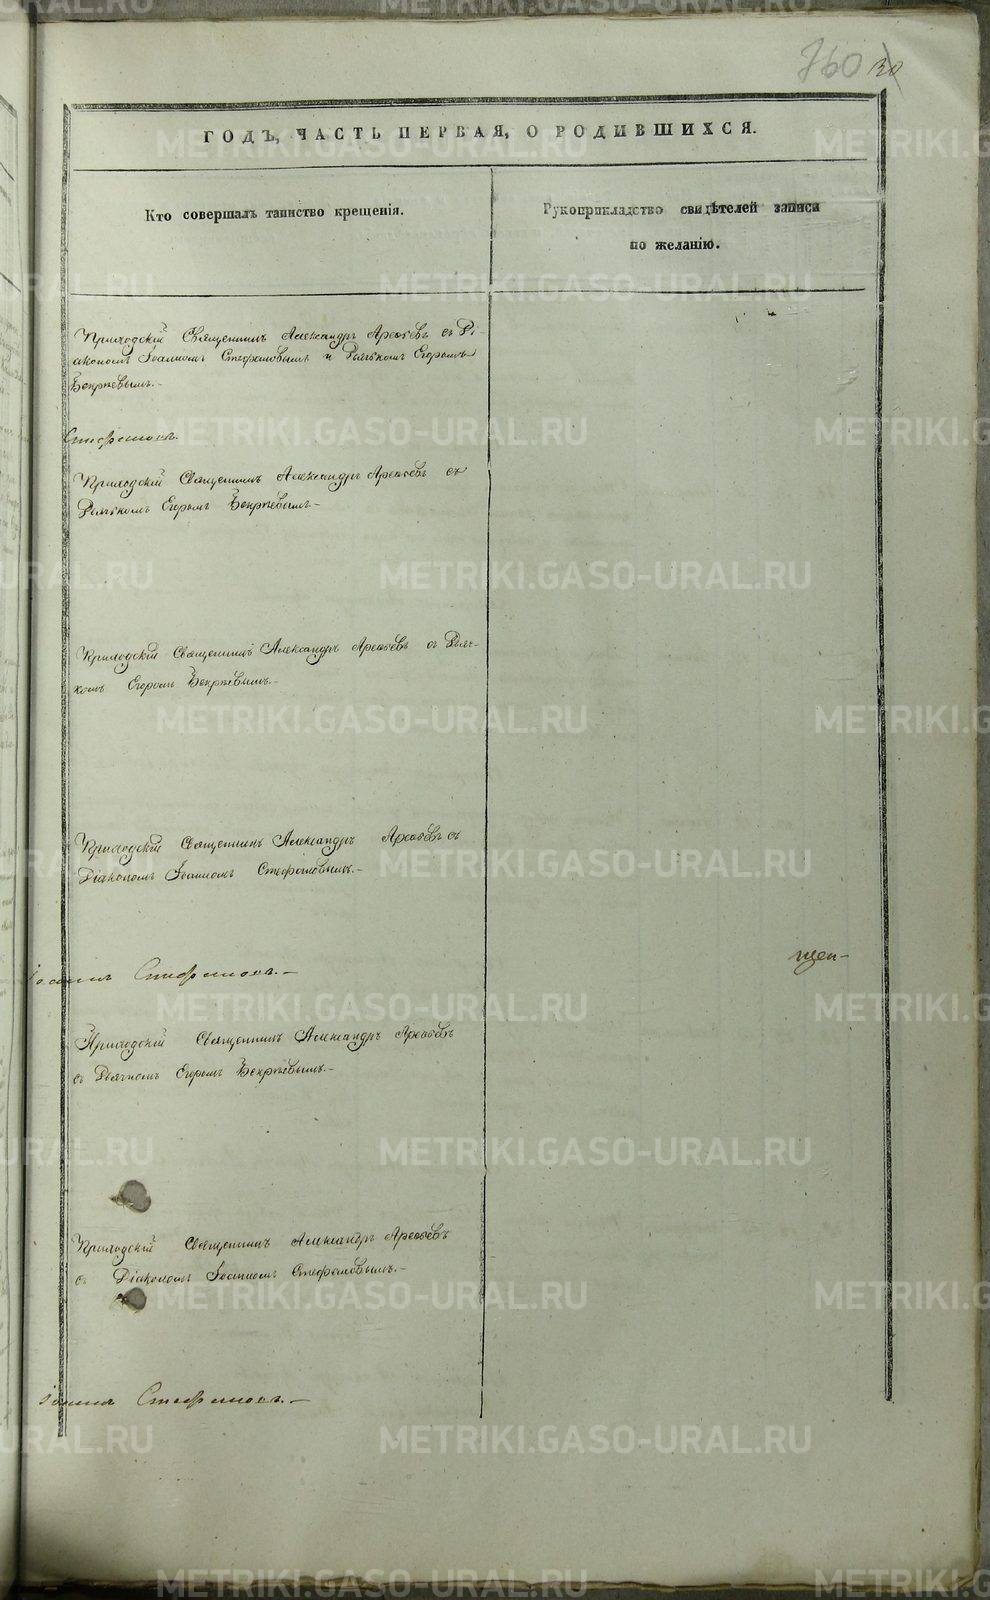 760 30
ГОДЪ, ЧАСТЬ ПЕРВАЯ, О РОДИВШИХСЯ.
Кто совершалъ таинство крещенія.
Рукоприкладство свидѣтелей записи
по желанію.
Приходскій Священникъ Александръ Арефьевъ съ Ді-
акономъ Іоанномъ Стефановымъ и Дьячкомъ Егоромъ
Стефановъ.
Приходскій Священникъ Александръ Арефьевъ съ
Дьячкомъ Егоромъ
Приходскій Священникъ Александръ Арефьевъ съ Дьяч-
комъ Егоромъ
Приходскій Священникъ Александръ Арефьевъ съ
Діакономъ Іоанномъ Стефановымъ.-
щен-
Іоаннъ Стефановъ.-
Приходскій Священникъ Александръ Арефьевъ
съ Дьячкомъ Егоромъ
Приходскій Священникъ Александръ Арефьевъ
съ Діакономъ Іоанномъ Стефановымъ.-
Іоаннъ Стефановъ.-
METRIKI.GASO-URAL.RU